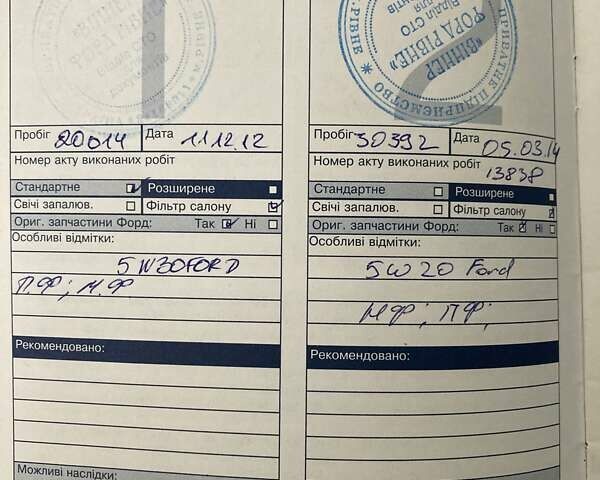 ПРИВАТНЕ ПІДПРИЄМСТВО
«ВІННЕР
ФОРД РІВНЕ»
Відділ СТО
Пробіг 20014 Дата 11.12.12
Номер акту виконаних робіт
Стандартне Розширене
Свічі запалюв. Фільтр салону
Ориг. запчастини Форд: Так Ні
Особливі відмітки:
5W30FORD
П.Ф; М.Ф
Рекомендовано:
Можливі наслідки:
Пробіг 30392 Дата 05.03.14
Номер акту виконаних робіт 13838
Стандартне Розширене
Свічі запалюв. Фільтр салону
Ориг. запчастини Форд: Так Ні
Особливі відмітки:
5W20 Ford
МФ; ПФ;
Рекомендовано: